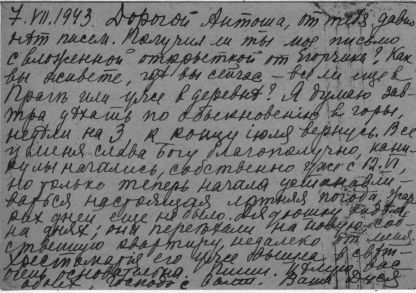 7.VII.1943. Дорогой Антоша, от тебя давно
нет писем. Получил ли ты мое письмо
с вложенной открыткой от Попчика? Как
вы живете, где вы сейчас – все ли еще в
Праге или уже в деревне? Я думаю зав-
тра уехать по обыкновению в горы,
недели на 3, к концу июля вернусь. Все
у меня слава Богу благополучно, кани-
кулы начались, собственно уже с 12.VI,
но только теперь начала устанавли-
ваться настоящая летняя погода, жар-
ких дней еще не было. Дядюшку видела
на днях, они переехали на новую соб-
ственную квартиру, недалеко от меня.
Хрестоматия его уже вышла и
очень основательна. Пиши. Целую вас
обоих. Господь с вами. Ваша